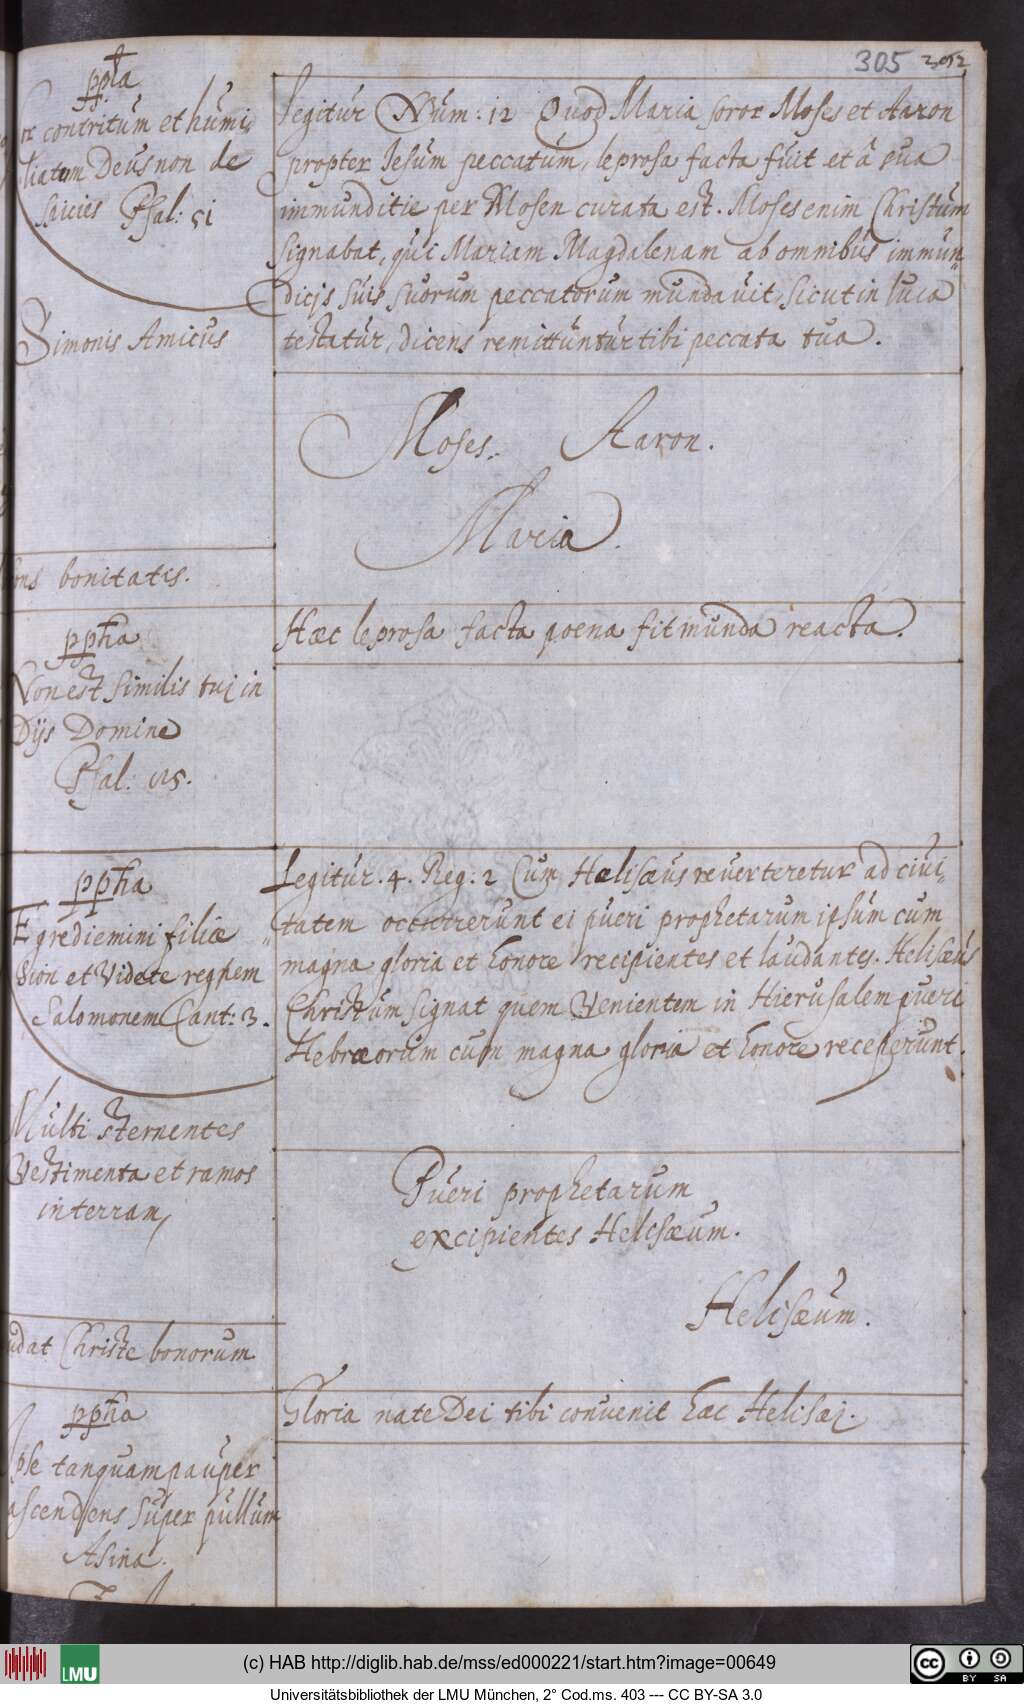 305 302
ppħa
or contritum et humi„
liatum Deus non de
spicies Psal: 51
Simonis Amicus
fons bonitatis.
ppħa
Non est similis tui in
Dijs Domine
Psal:
ppħa
Egrediemini filiæ
Sion et Videte regnem
Salomonem Cant: 3.
Multi sternentes
Vestimenta et ramos
in terram,
Christe bonorum
ppħa
Ipse tanquam pauper
ascendens super pullum
Asina.
Legitur Num: 12 Quod Maria soror Moses et Aaron
propter Iesum peccatum, leprosa facta fuit et â sua
immunditie per Mosen curata est. Moses enim Christum
signabat, qui Mariam Magdalenam ab omnibus immun„
dicijs suis suorum peccatorum mundavit, sicut in luca
testatur, dicens remittuntur tibi peccata tua.
Moses. Aaron.
Maria.
Hæc leprosa facta poena fit munda reacta.
Legitur. 4. Reg: 2 Cum Helisæus reverteretur ad civi„
tatem occurrerunt ei pueri prophetarum ipsum cum
magna gloria et honore recipientes et laudantes. Helisæus
Christum signat quem Venientem in Hierusalem pueri
Hebræorum cum magna gloria et honore receperunt.
Pueri prophetarum
excipientes Helisæum.
Helisæum.
Gloria nate Dei tibi convenit hæc Helisæi.
LMU
(c) HAB http://diglib.hab.de/mss/ed000221/start.htm?image=00649
Universitätsbibliothek der LMU München, 2° Cod.ms. 403 --- CC BY-SA 3.0
cc BY SA